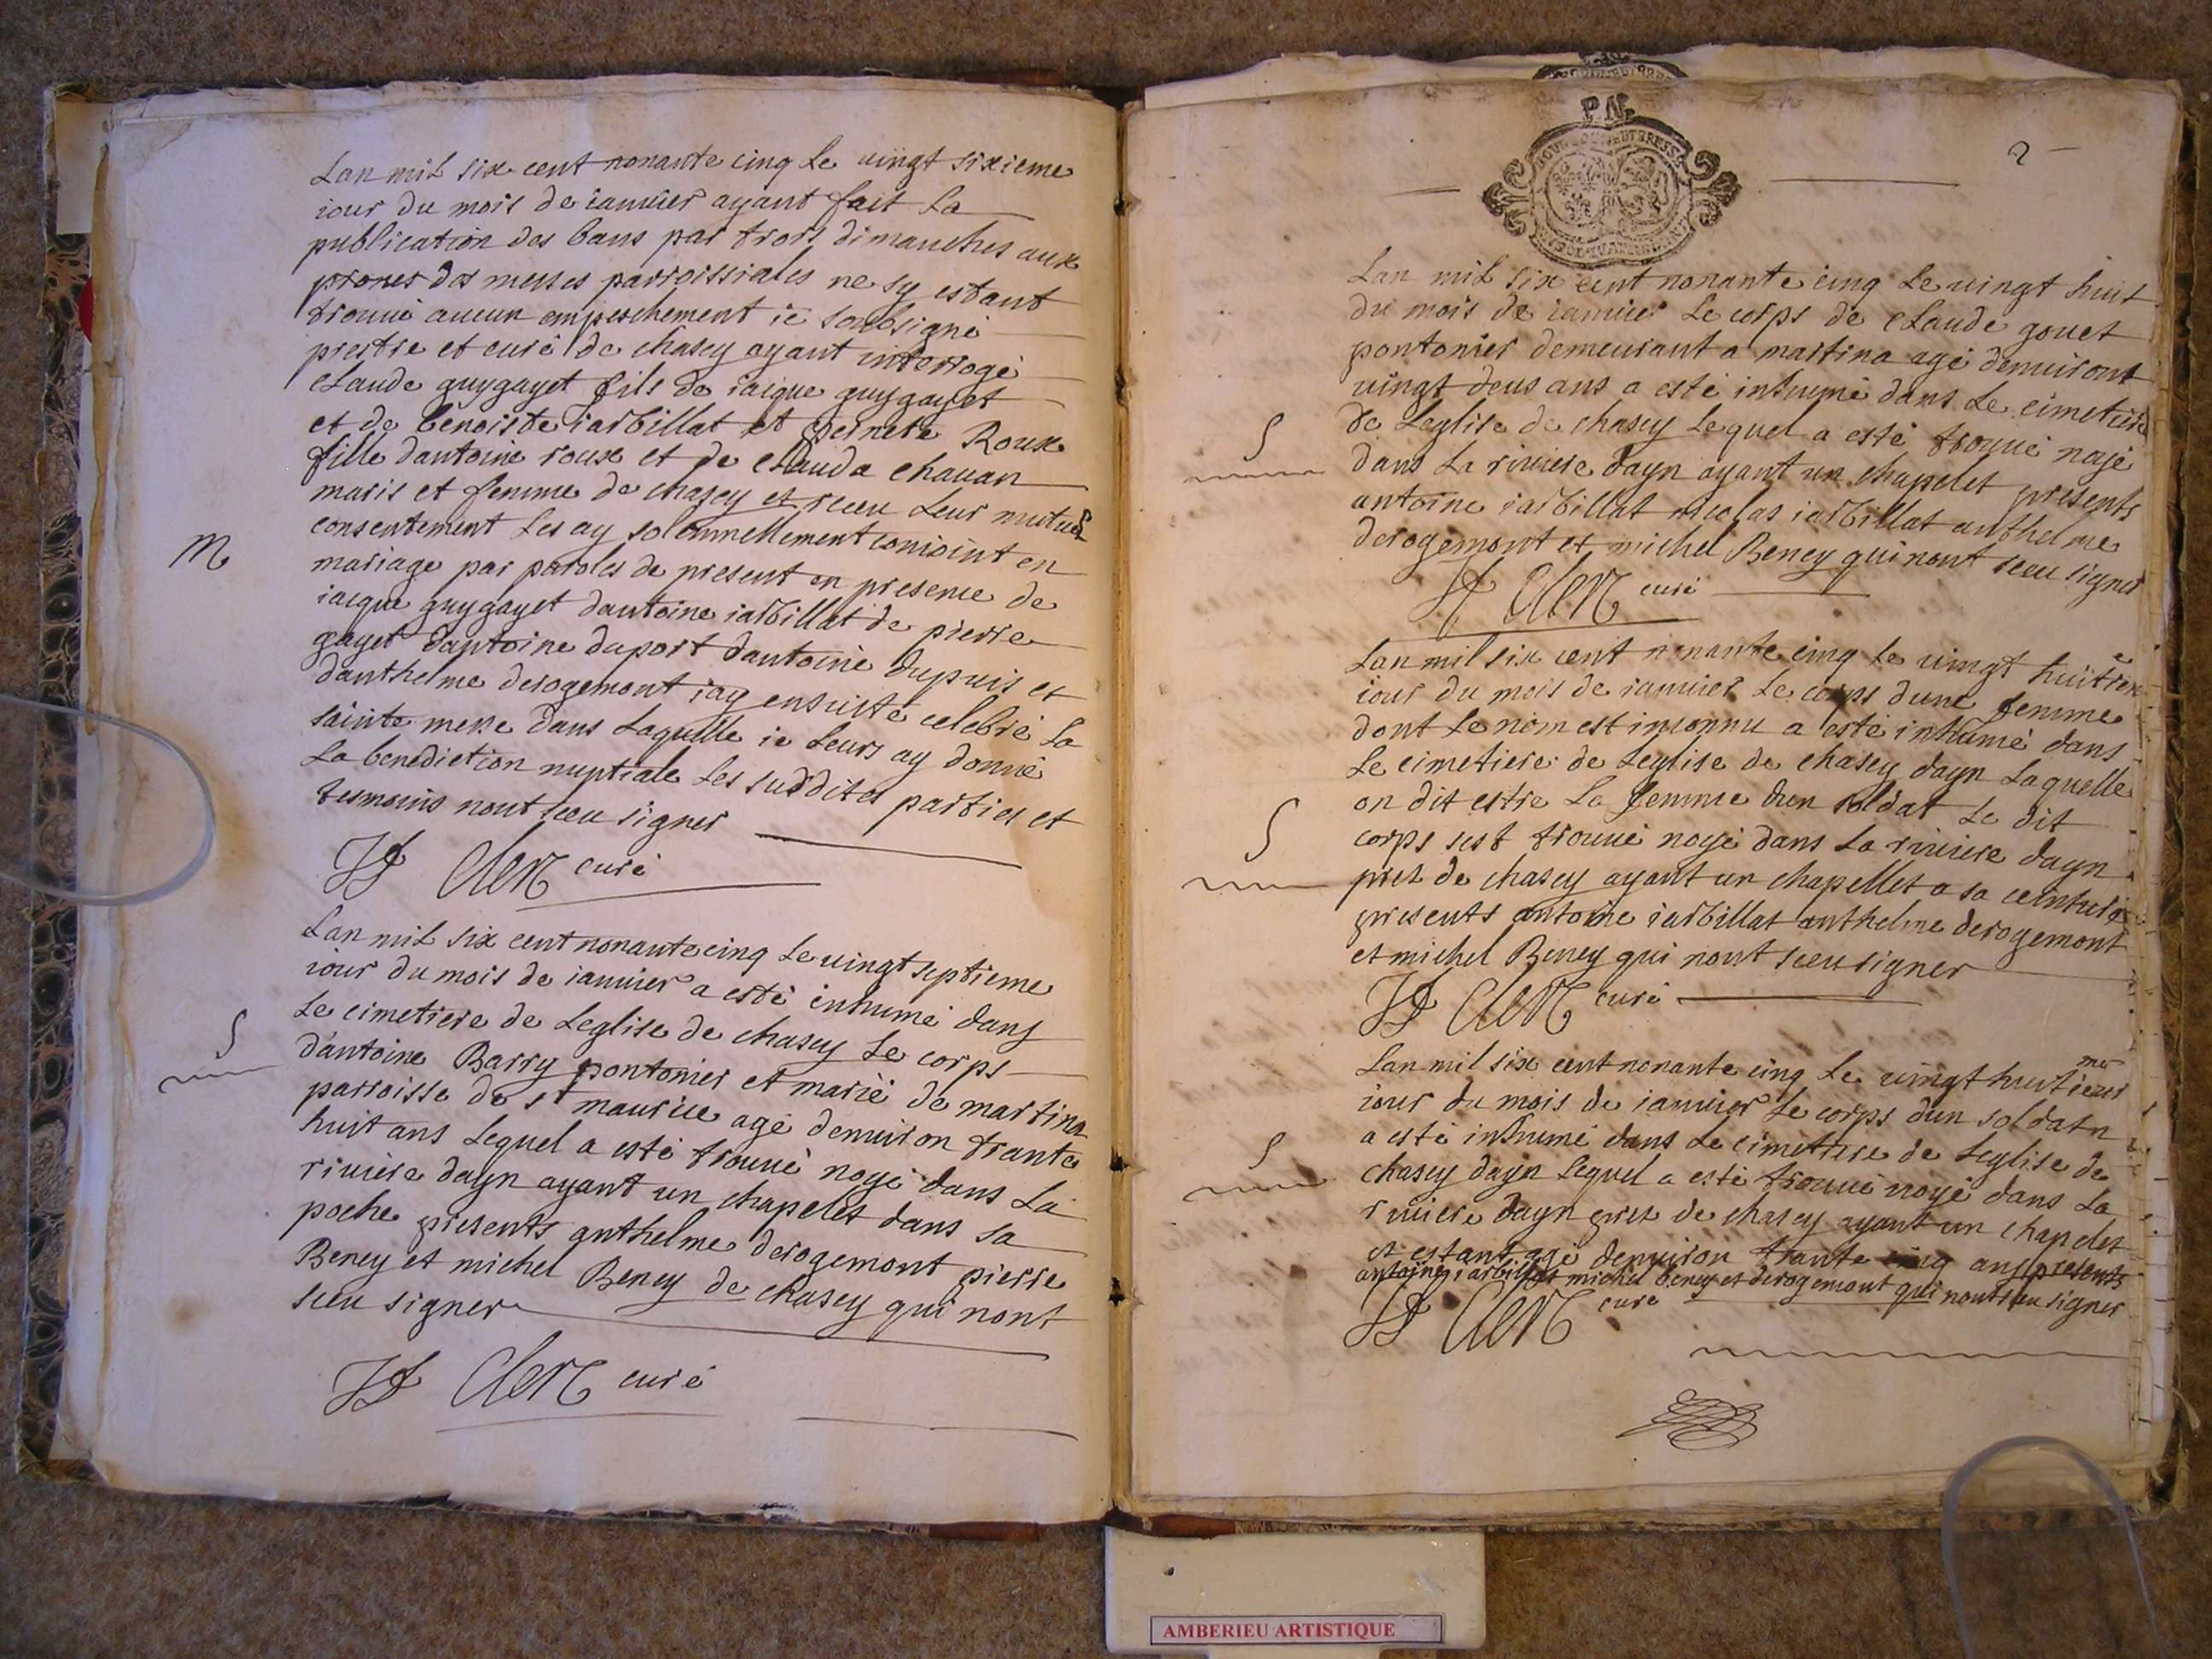 Lan mil six cent nonante cinq le uingt sixieme
iour du mois de ianuier ayant fait la
publication des bans par trois dimanches aux
prones des messes parroissiales ne sy estant
trouué aucun empeschement ie soubsigné
prestre et curé de chasey ayant interrogé
claude guygayet fils de iaique guygayet
et de benoiste iarbillat et pernete Roux
fille dantoine roux et de clauda chauan
maris et femme de chasey et receu leur mutuel
consentement les ay solennellement conioint en
M
mariage par paroles de present en presence de
iacque guygayet dantoine iarbillat de pierre
gayet dantoine duport dantoine dupuis et
danthelme derogemont iay ensuiste celebré la
sainte messe dans laquelle ie leurs ay donné
la benediction nuptiale les suddites parties et
tesmoins nont sceu signer
Clerc curé
Lan mil six cent nonante cinq le uingt septieme
iour du mois de ianuier a esté inhumé dans
le cimetiere de leglise de chasey le corps
S
dantoine Barry pontonier et marié de martina
parroisse de st maurice agé denuiron trante
huit ans lequel a esté trouué noyé dans la
riuiere dayn ayant un chapelet dans sa
poche presents anthelme derogemont pierre
Beney et michel Beney de chasey qui nont
sceu signer
Clerc curé
P.N.
2
Lan mil six cent nonante cinq le uingt huit
du mois de ianuier le corps de claude gouet
pontonier demeurant a martina agé denuiront
uingt deus ans a esté inhumé dans le cimetiere
de leglise de chasey lequel a esté trouué noyé
S
dans la riuiere dayn ayant un chapelet presents
antoine iarbillat nicolas iarbillat anthelme
derogemont et michel Beney qui nont sceu signer
Clerc curé
Lan mil six cent nonante cinq le uingt huitiem
iour du mois de ianuier le corps dune femme
dont le nom est inconnu a esté inhumé dans
le cimetiere de leglise de chasey dayn laquelle
on dit estre la femme dun soldat le dit
S
corps sest trouué noyé dans la riuiere dayn
pres de chasey ayant un chapellet a sa ceinture
presents antoine iarbillat anthelme derogemont
et michel Beney qui nont sceu signer
Clerc curé
Lan mil six cent nonante cinq le uingt huitieme
iour du mois de ianuier le corps dun soldat
a esté inhumé dans le cimetiere de leglise de
S
chasey dayn lequel a esté trouué noyé dans la
riuiere dayn pres de chasey ayant un chapelet
et estant agé denuiron trante cinq ans presents
antoine iarbillat michel beney et derogemont qui nont sceu signer
Clerc curé
AMBERIEU ARTISTIQUE